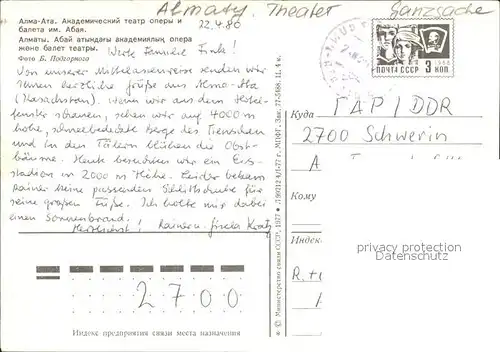 Almaty, Theater Ganzsache
Алма-Ата. Академический театр оперы и
балета им. Абая.
22.4.86
Алматы. Абай атындағы академиялық опера
және балет театры.
Фото Б. Подгорного
Werte Familie Fink!
Von unserer Mittelasienreise senden wir
Ihnen herzliche Grüße aus Alma-Ata
(Kasachstan). Wenn wir aus dem Hotel-
fenster schauen, sehen wir auf 4000 m
hohe, schneebedeckte Berge des Tienschan
und in den Tälern blühen die Obst-
bäume. Heute besuchten wir ein Eis-
stadion in 2000 m Höhe. Leider bekam
Rainer keine passenden Schlittschuhe für
seine großen Füße. Ich holte mir dabei
einen Sonnenbrand.
Herzlichst! Rainer u. Gisela
2700
Индекс предприятия связи места назначения
© Министерство связи СССР, 1977
ПОЧТА СССР 3 КОП
1966
Куда ГДР / DDR
2700 Schwerin
Кому
Индекс
R.
protection copyright
Datenschutz